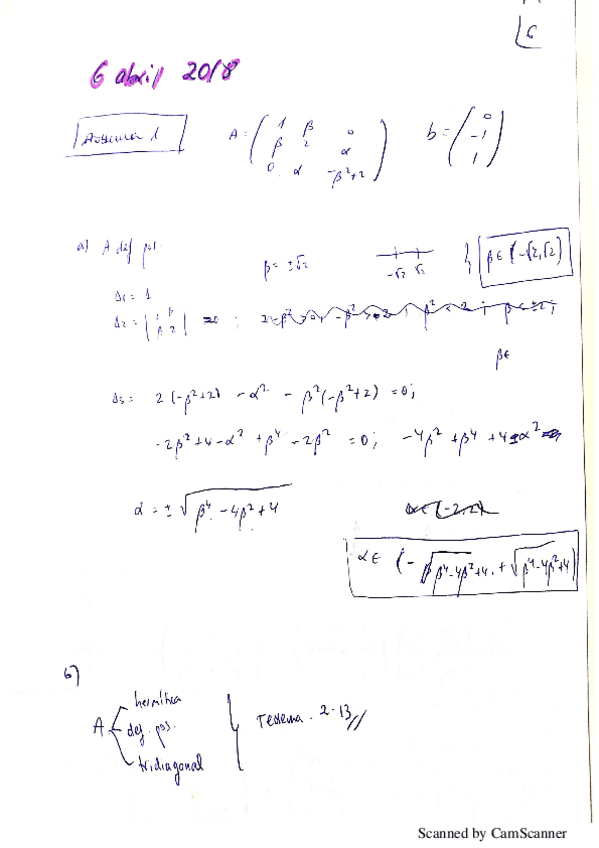 6
6 abril 2018
A = ( 1 β 0
β 2 α
0 α -β²+2 )
b = ( 0
-1
1 )
a) A def pos.
β = ±√2
-√2 √2
β ∈ (-√2, √2)
Δ1 = 1
Δ2 = | 1 β
β 2 |
β ∈
Δ3 = 2(-β²+2) - α² - β²(-β²+2) = 0;
-2β²+4-α²+β⁴-2β² = 0; -4β²+β⁴+4=α²
α = ± √β⁴-4β²+4
α ∈ (-2,2)
α ∈ (-√β⁴-4β²+4, +√β⁴-4β²+4)
b)
A hermítica
def. pos.
tridiagonal
Teorema. 2.13//
Scanned by CamScanner